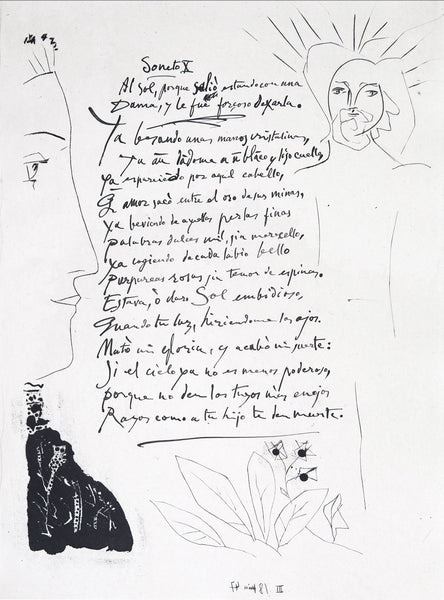 Soneto X
Al Sol, porque salió estando con una
Dama, y le fue forçoso dexarla.
Ya besando unas manos cristalinas,
Ya añudándome a un blãco y liso cuello,
Ya esparciẽdo por aquel cabello,
Q̃ amor sacó entre el oro de sus minas,
ya beviendo de aquellas perlas finas
palabras dulces mil, sin merecello,
ya cogiendo de cada labio bello
purpureas rosas sin temor de espinas.
Estava, ò claro Sol embidioso,
Quando tu luz, hiriendome los ojos.
Matò mi gloria, y acabò mi suerte:
Si el cielo ya no es menos poderoso,
porque no den los tuyos más enojos
Rayos como a tu hijo te den muerte.
III